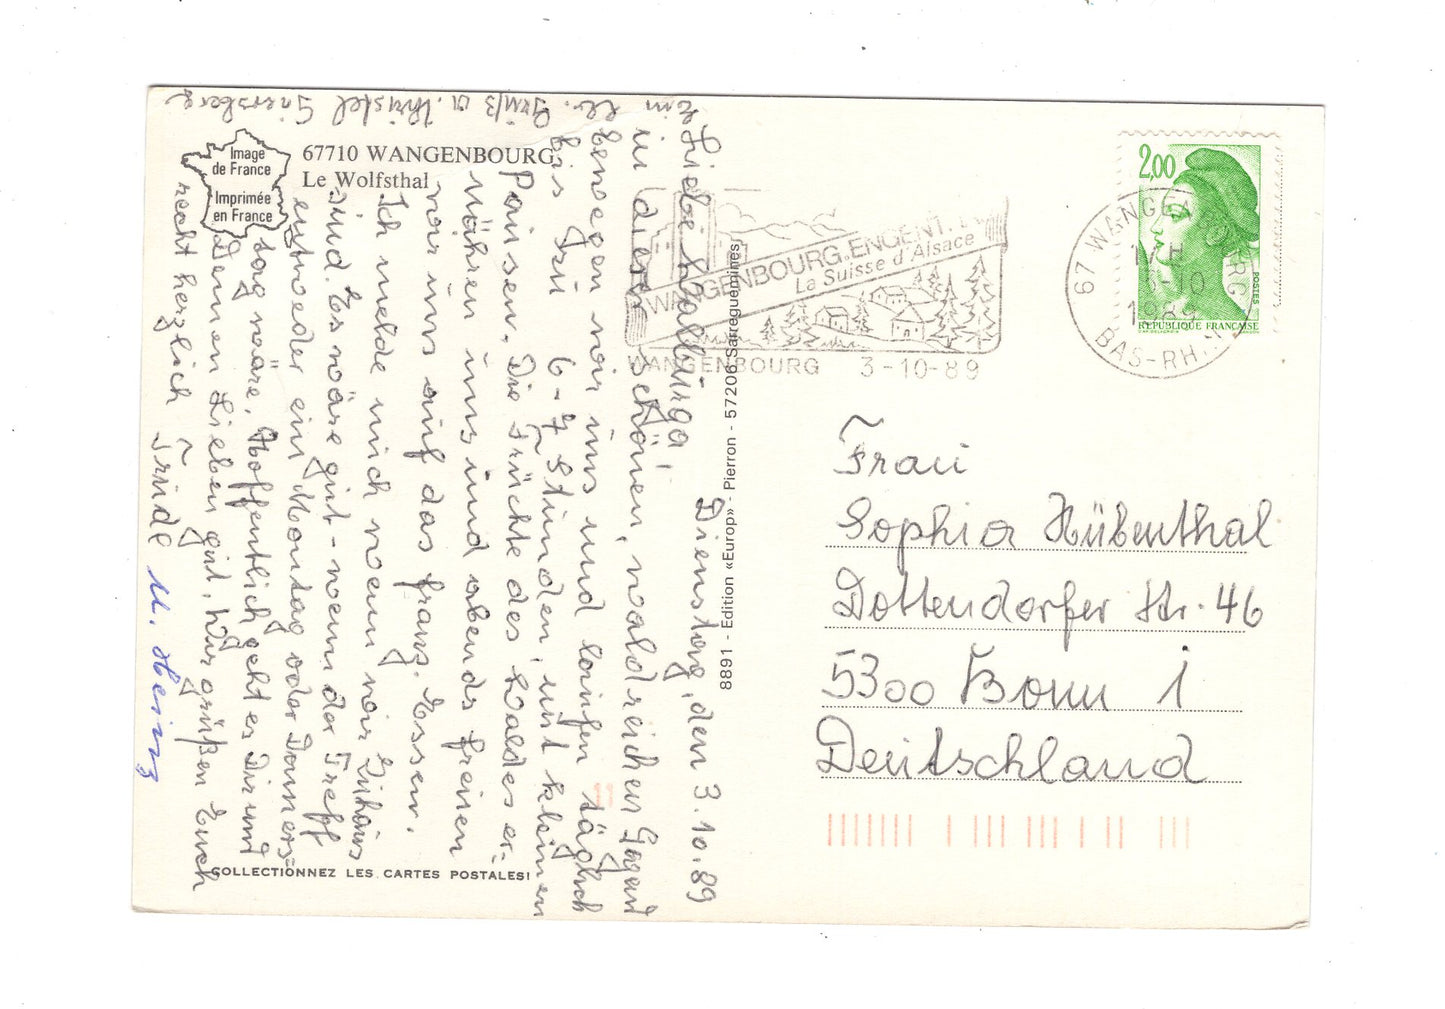 Image
de France
Imprimée
en France
67710 WANGENBOURG
Le Wolfsthal
Dienstag, den 3.10.89
Liebe Wallburga,
in dieser schönen, waldreichen Gegend
bewegen wir uns und laufen täglich
bis zu 6-7 Stunden, mit kleinen
Pausen. Die Früchte des Waldes er-
nähren uns und abends freuen
wir uns auf das franz. Essen.
Ich melde mich wenn wir zuhaus
sind. Es wäre gut - wenn der Treff
entweder ein Montag oder Donners-
tag wäre. Hoffentlich geht es Dir und
Deinen Lieben gut. Wir grüßen Euch
recht herzlich Trude u. Heinz
Ein lb. Gruß a. Christel
WANGENBOURG.ENGENT.
La Suisse d'Alsace
WANGENBOURG 3-10-89
67 WANGENBOURG
3-10
1989
BAS-RHIN
2,00
POSTES
REPUBLIQUE FRANCAISE
8891 - Edition «Europ» - Pierron - 57206 Sarreguemines
Frau
Sophia Hübenthal
Dottendorfer Str. 46
5300 Bonn 1
Deutschland
COLLECTIONNEZ LES CARTES POSTALES!